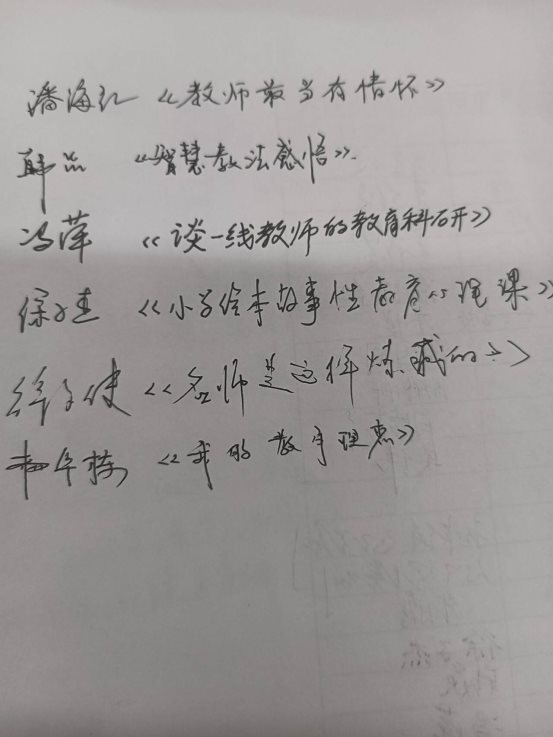 潘海红 《教师最当有情怀》
郭品 《智慧教法感悟》
冯萍 《谈一线教师的教育科研》
《小学绘本故事性教育心理课》
《名师是这样炼成的》
《我的教学理念》